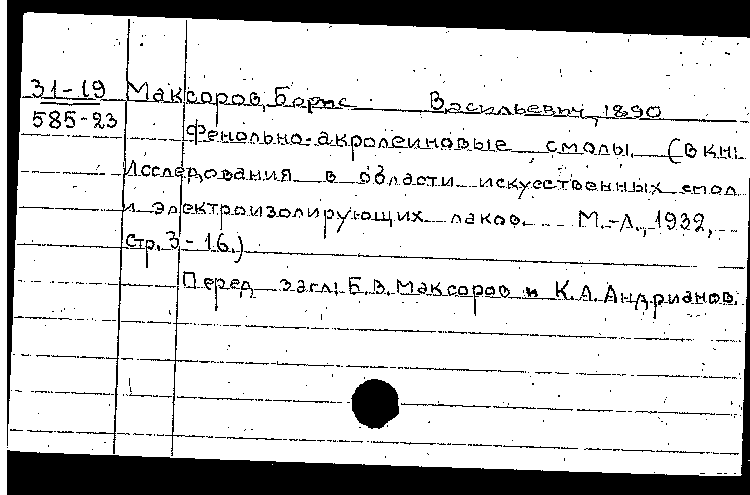 31-19 Максоров, Борис Васильевич, 1890
585-23 Фенольно-акролеиновые смолы. (В кн:
Исследования в области искусственных смол
и электроизолирующих лаков. М.-Л., 1932,
стр. 3-16.)
Перед загл: Б.В. Максоров и К.А. Андрианов.